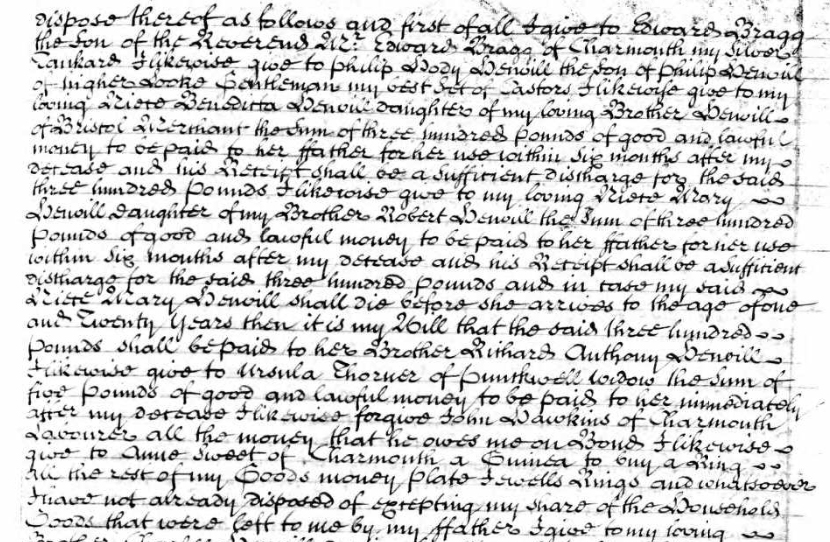 dispose thereof as follows and first of all I give to Edward Bragg
the Son of the Reverend Mr. Edward Bragg of Charmouth my Silver
Tankard I likewise give to Philip Body Henvill the Son of Philip Henvill
of higher Looke Gentleman my best Set of Castors I likewise give to my
loving Niece Beneditta Henvill daughter of my loving Brother Henvill
of Bristol Merchant the Sum of three hundred pounds of good and lawful
money to be paid to her ffather for her use within Six months after my
decease and his Receipt shall be a sufficient discharge for the said
three hundred Pounds I likewise give to my loving Niece Mary
Henvill daughter of my Brother Robert Henvill the Sum of three hundred
Pounds of good and lawful money to be paid to her ffather for her use
within Six months after my decease and his Receipt shall be a sufficient
discharge for the said three hundred pounds and in case my said
Niece Mary Henvill shall die before she arrives to the age of one
and Twenty Years then it is my Will that the said three hundred
Pounds shall be paid to her Brother Richard Anthony Henvill
I likewise give to Ursula Thorner of Puncknell widow the Sum of
five Pounds of good and lawful money to be paid to her immediately
after my decease I likewise forgive John Hawkins of Charmouth
Labourer all the money that he owes me on Bond I likewise
give to Anne Sweet of Charmouth a Guinea to buy a Ring
all the rest of my Goods money Plate Jewells Rings and whatsoever
I have not already disposed of excepting my share of the Household
Goods that were left to me by my ffather I give to my loving
Brother Charles Henvill